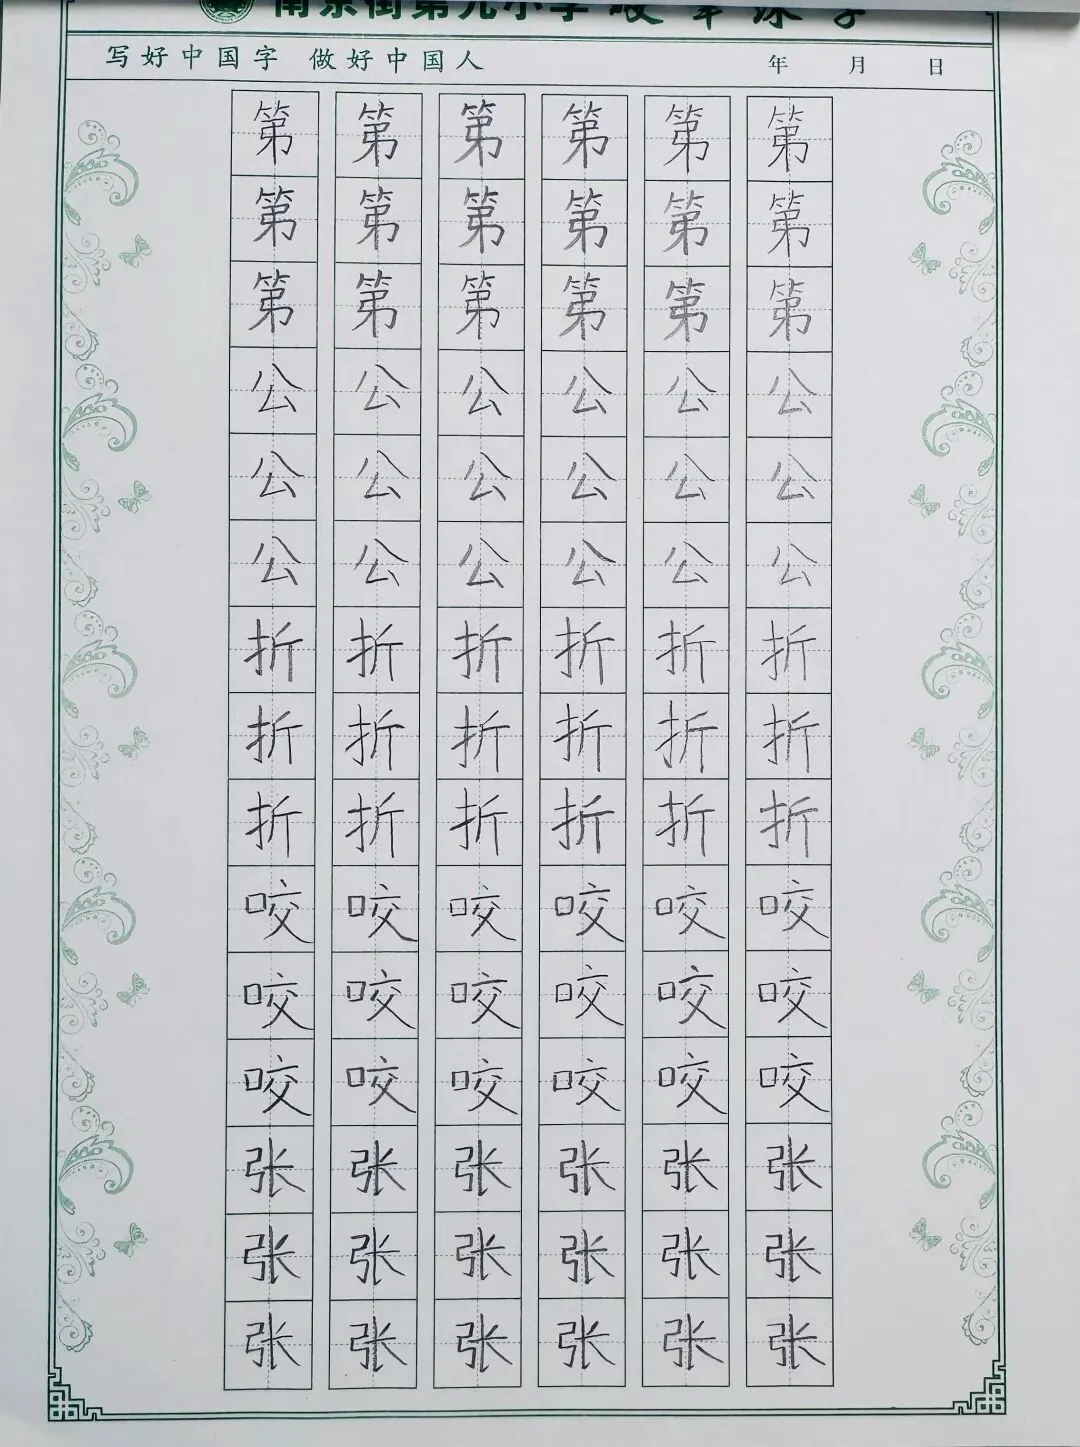 南京街第九小学
写好中国字 做好中国人 年 月 日
第 第 第 第 第 第
第 第 第 第 第 第
第 第 第 第 第 第
公 公 公 公 公 公
公 公 公 公 公 公
公 公 公 公 公 公
折 折 折 折 折 折
折 折 折 折 折 折
折 折 折 折 折 折
咬 咬 咬 咬 咬 咬
咬 咬 咬 咬 咬 咬
咬 咬 咬 咬 咬 咬
张 张 张 张 张 张
张 张 张 张 张 张
张 张 张 张 张 张